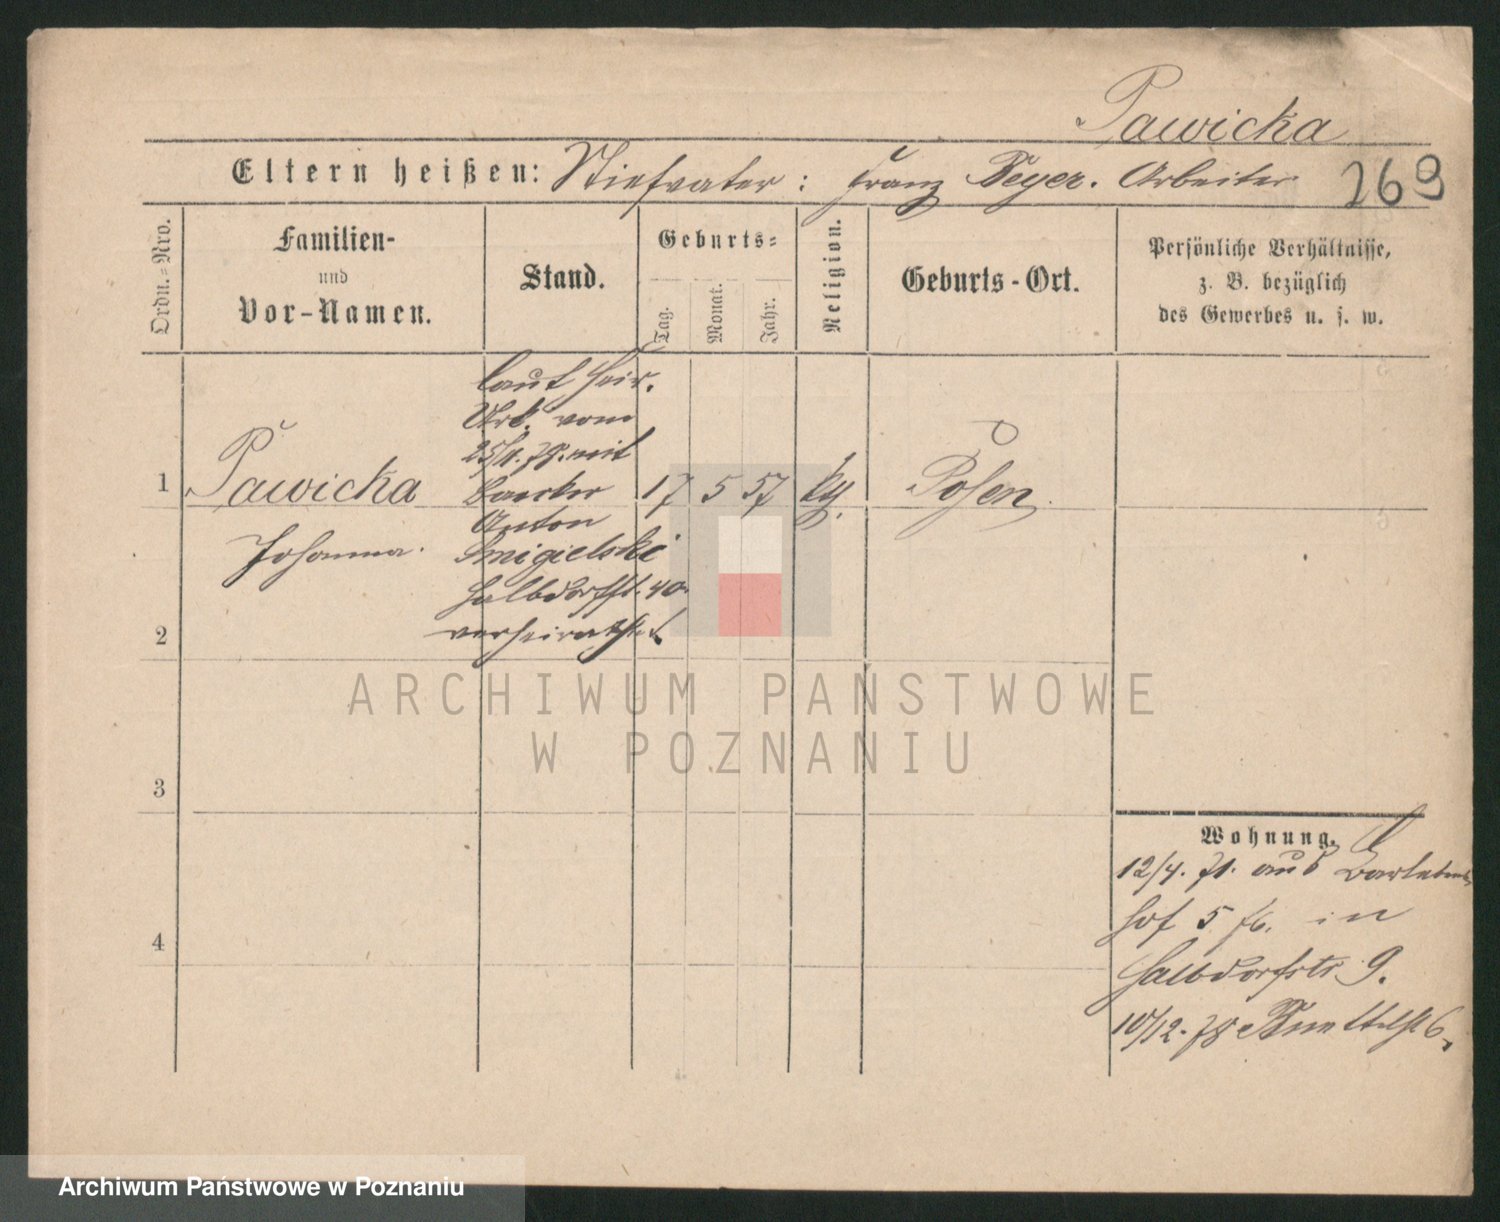 Pawicka
Eltern heißen: Stiefvater: Franz Beyer. Arbeiter
269
Ordn.=Nro.
Familien-
und
Vor-Namen.
Stand.
Geburts=
Tag.
Monat.
Jahr.
Religion.
Geburts-Ort.
Persönliche Verhältnisse,
z. B. bezüglich
des Gewerbes u. s. w.
laut Heir.
Urk. vom
mit
1 Pawicka 17 5 57 kth. Posen
Anton
Johanna. Smigielski
Halbdorfst. 40.
2 verheirathet
ARCHIWUM PAŃSTWOWE
W POZNANIU
3
Wohnung.
12/4. 71. aus Bartels
4 hof 5 in
Halbdorfstr 9.
10/12. 78 Buttelst 6.
Archiwum Państwowe w Poznaniu